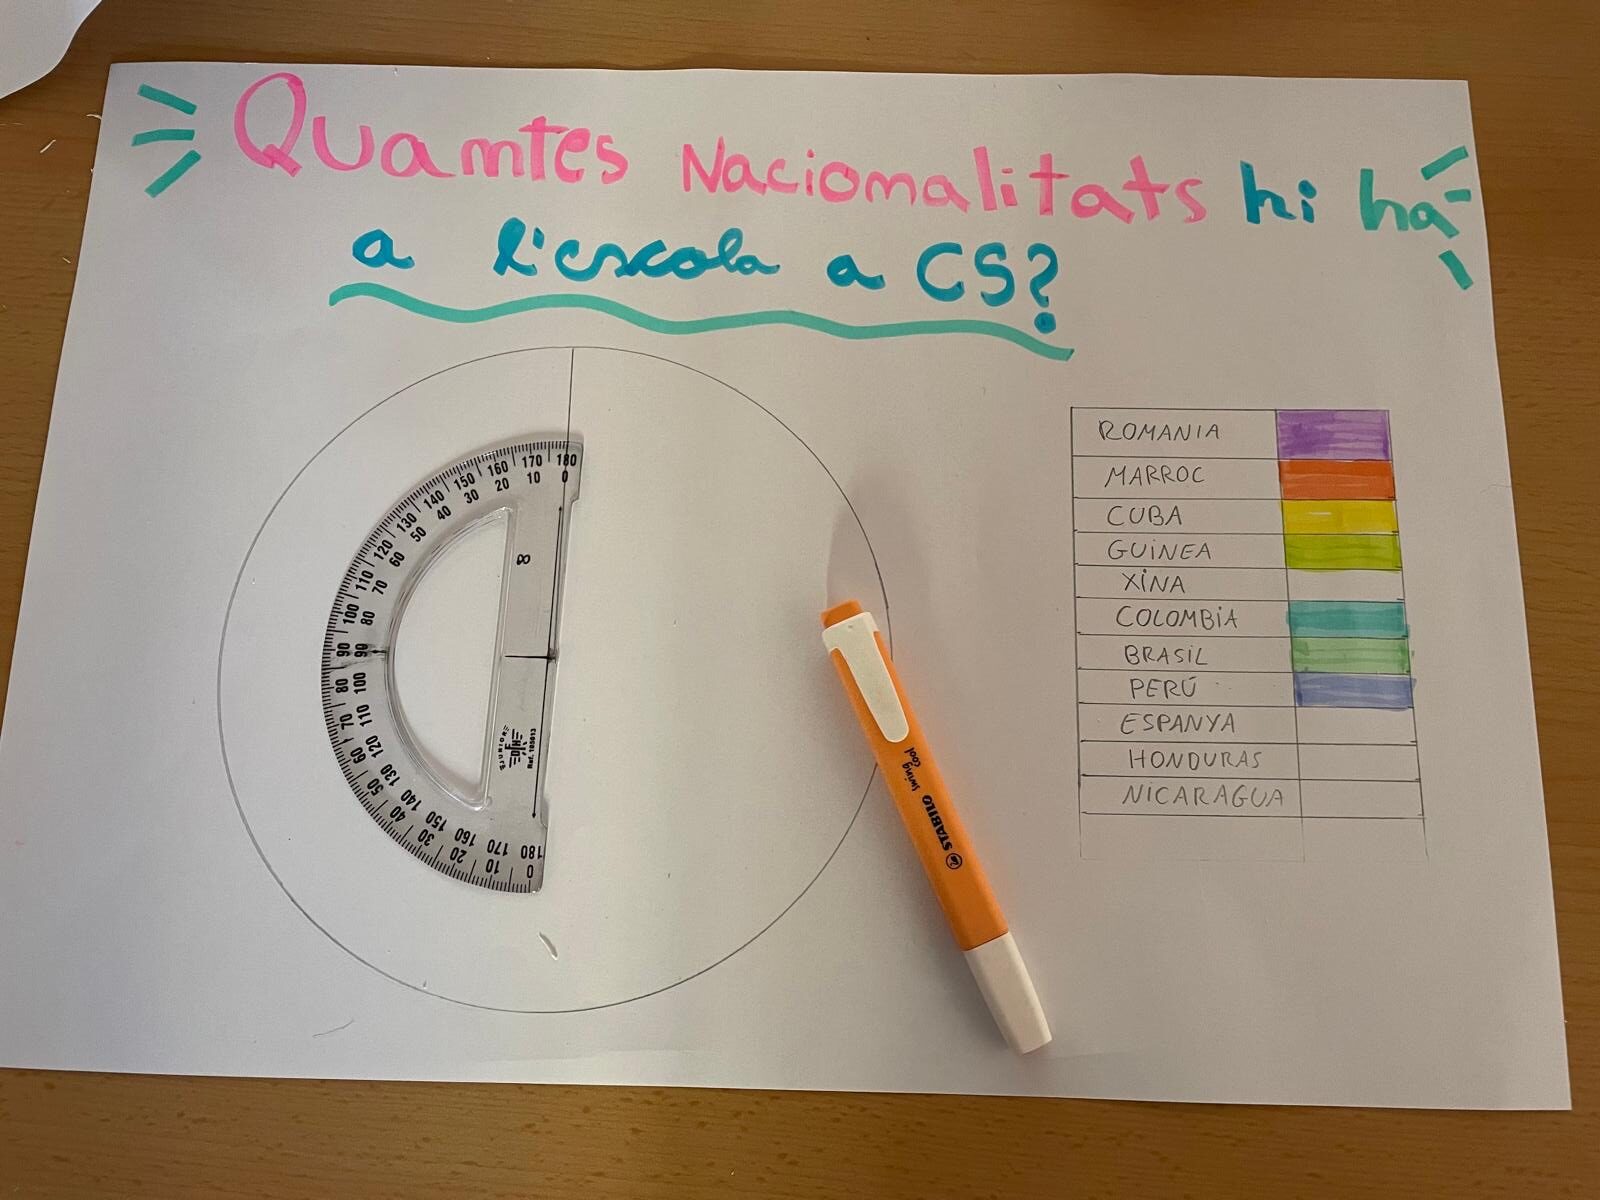 Quantes Nacionalitats hi ha
a l'escola a CS?
ROMANIA
MARROC
CUBA
GUINEA
XINA
COLOMBIA
BRASIL
PERÚ
ESPANYA
HONDURAS
NICARAGUA
180 170 160 150 140 130 120 110 100 90 80 70 60 50 40 30 20 10 0
0 10 20 30 40 50 60 70 80 90 100 110 120 130 140 150 160 170 180
Ref. 103013
STABILO swing cool